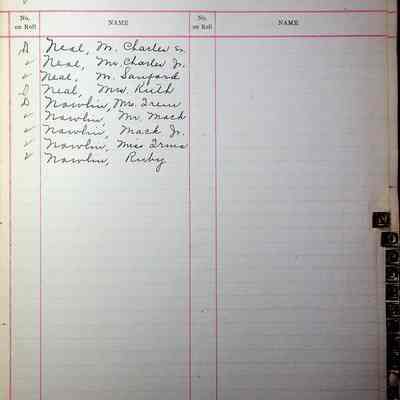 No. on Roll NAME No. on Roll NAME
D Neal, Mr. Charles Sr.
✓ Neal, Mr. Charles Jr.
✓ Neal, M. Sanford
D Neal, Mrs. Ruth
D Nowlin, Mrs. Irene
✓ Nowlin, Mr. Mack
✓ Nowlin, Mack Jr.
✓ Nowlin, Miss Irma
✓ Nowlin, Ruby